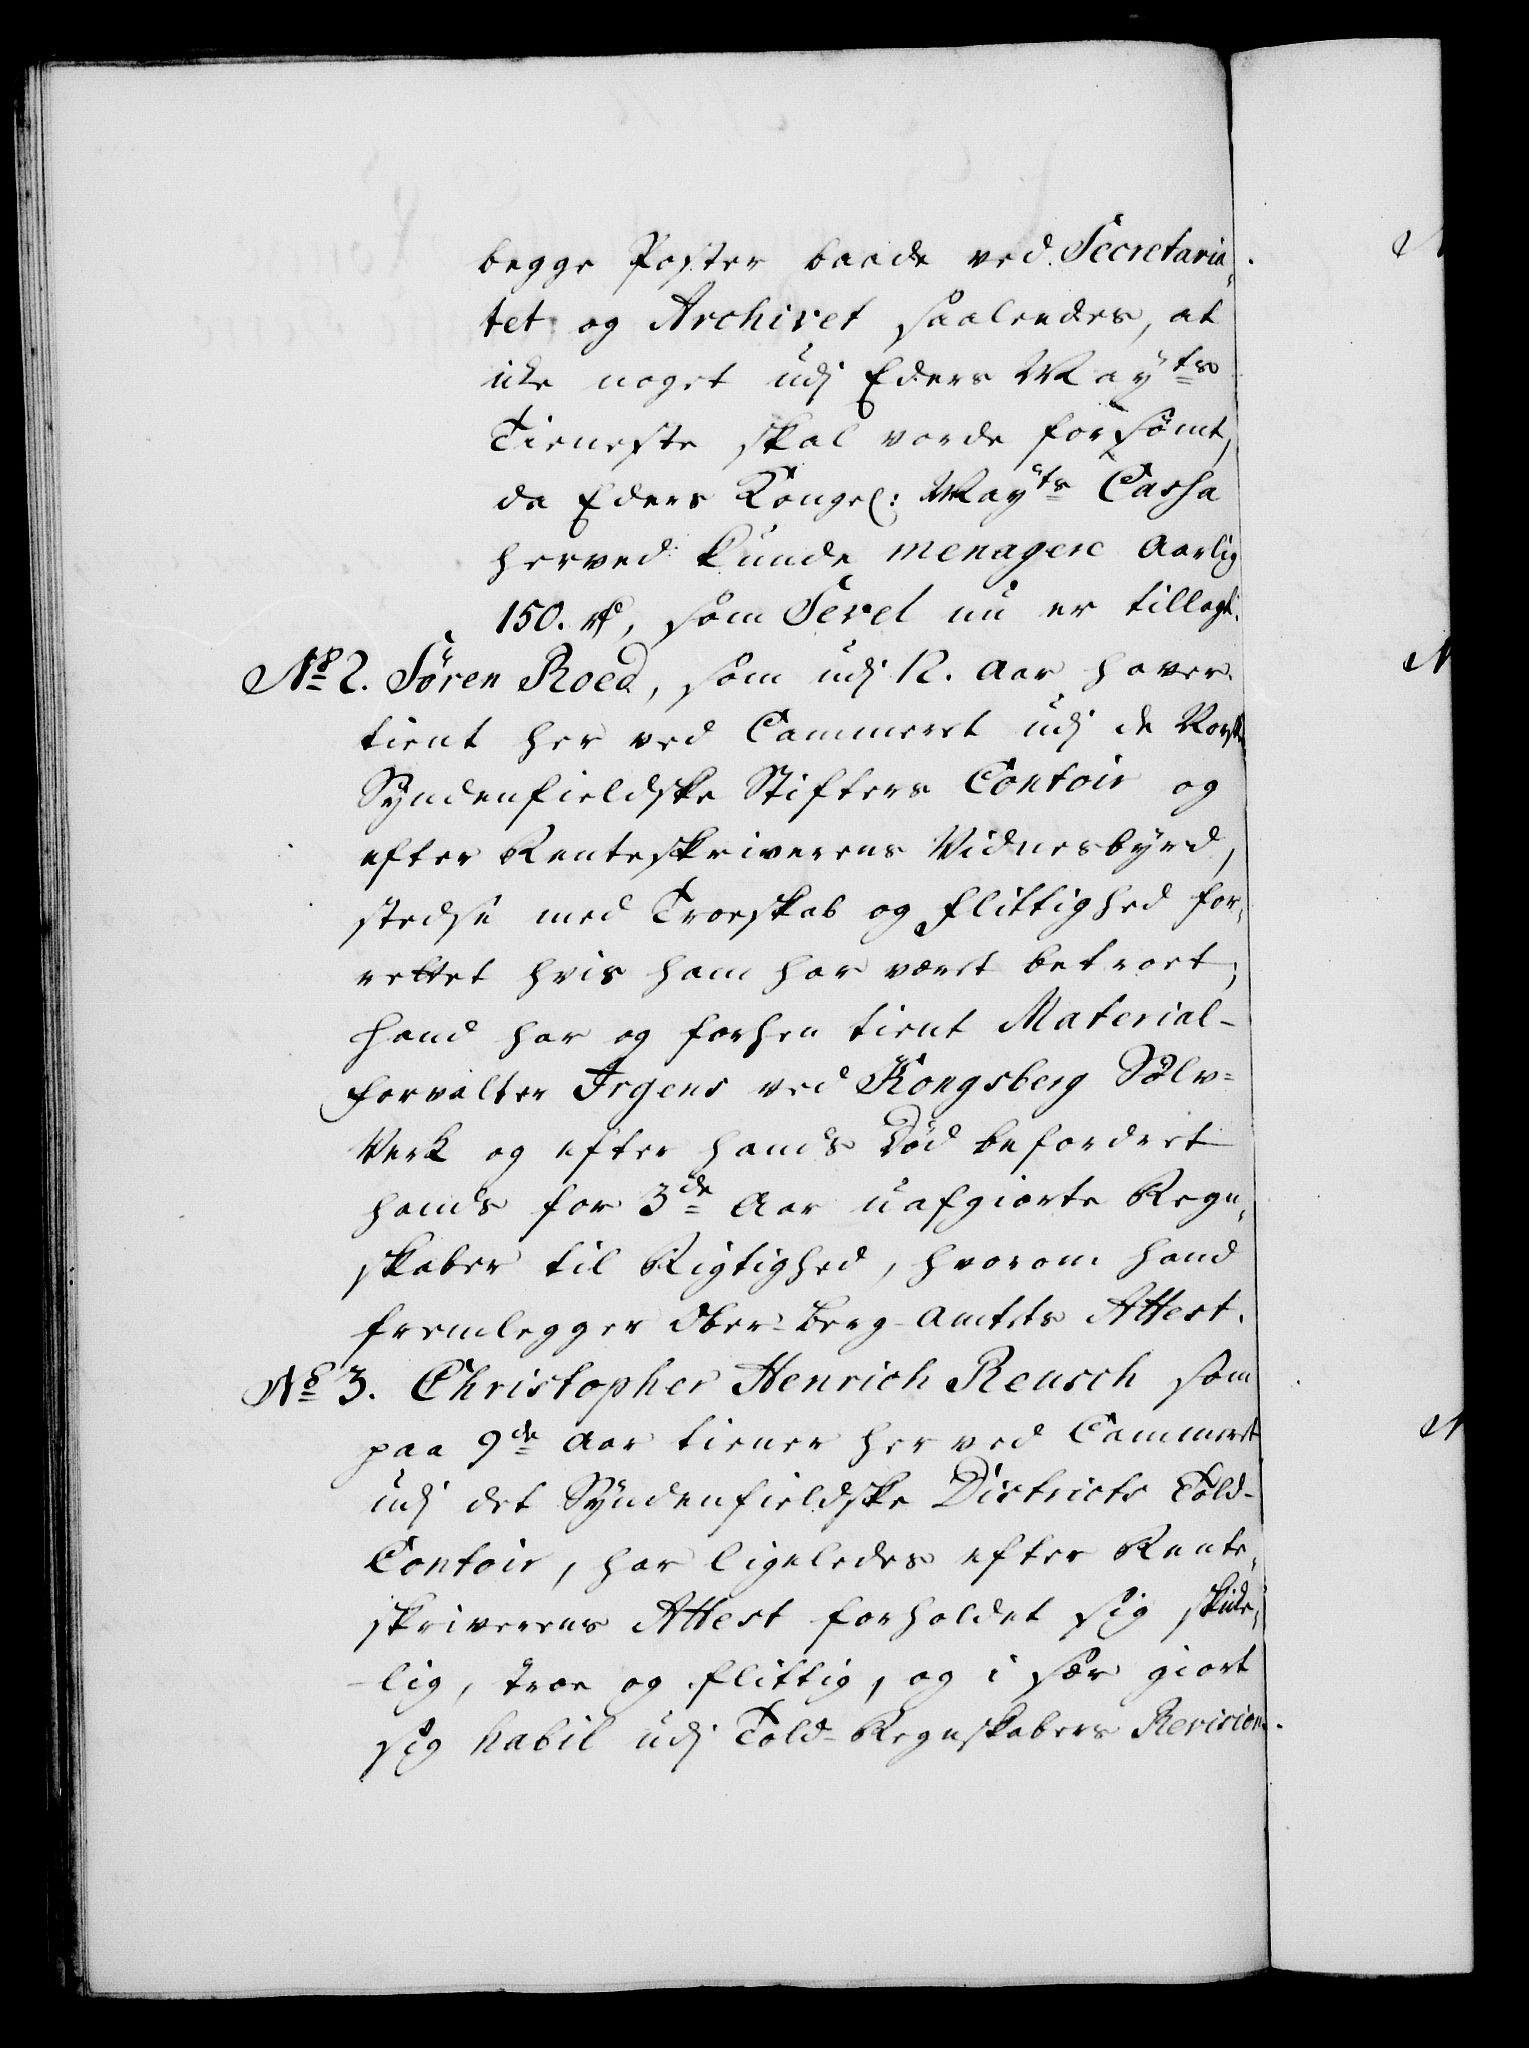 begge Poster baade ved Secretaria-
tet og Archivet saaledes, at
icke noget udj Eders Mayts
Tieneste skal vorde forsömt,
da Eders Kongel: Mayts Cassa
herved kunde menagere aarlig
150. rd, som Sevel nu er tillagt.
No 2. Sören Roed, som udj 12. Aar haver
tient her ved Cammeret udj de Norske
Syndenfieldske Stifters Contoir og
efter Renteskriverens Vidnesbyrd,
stedse med Troeskab og Flittighed for-
rettet hvis ham har været betroet;
Hand har og forhen tient Material-
forvalter Irgens ved Kongsberg Sölv-
Verk og efter hands Död befordret
hands for 3de Aar uafgiorte Regn-
skaber til Rigtighed, hvorom hand
fremlegger Ober-Berg-Amtets Attest.
No 3. Christopher Henrich Reusch som
paa 9de Aar tiener her ved Cammeret
udj det Syndenfieldske Districts Told-
Contoir, har ligeledes efter Rente-
skriverens Attest forholdet sig skicke-
lig, troe og flittig, og i sær giort
sig habil udj Told-Regnskabers Revision.